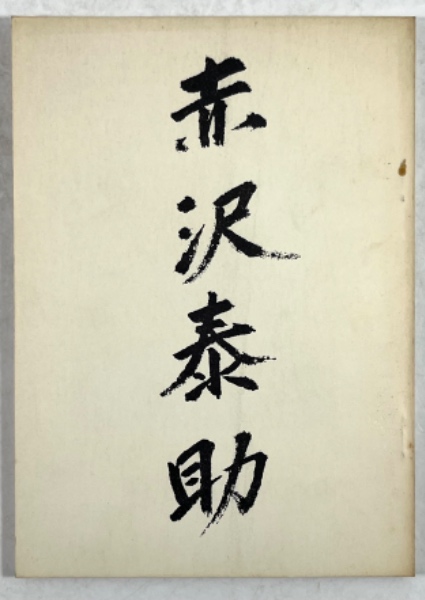 赤沢泰助